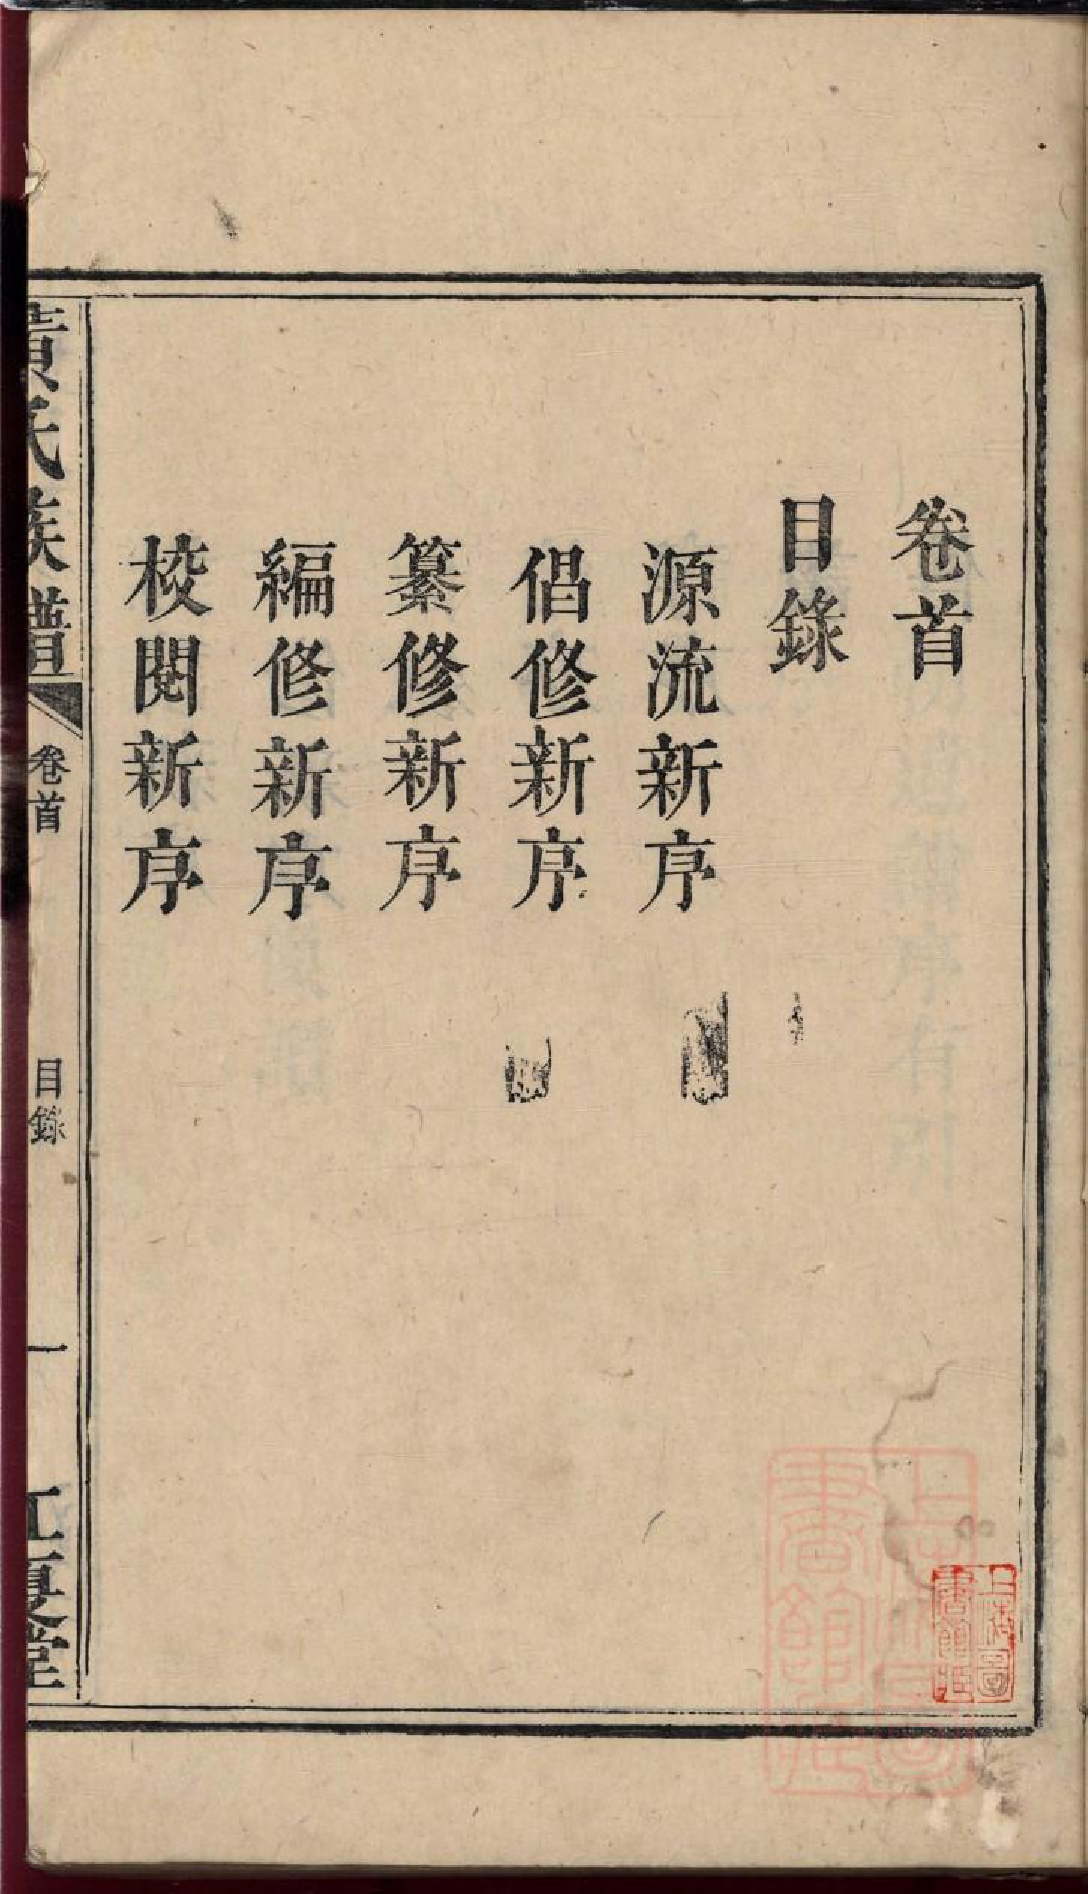 卷首
目錄
源流新序
倡修新序
纂修新序
編修新序
校閱新序
黃氏族譜
卷首
目錄
一
江夏堂
上海圖書館藏